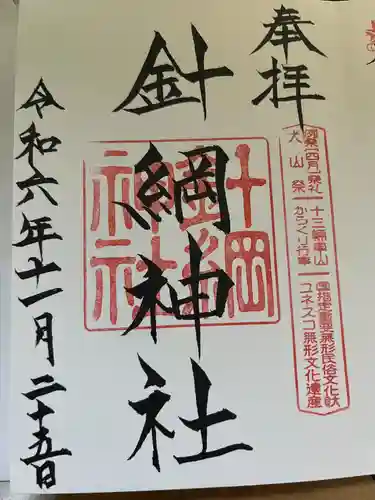 奉拝
例祭(四月)祭礼
犬山祭
十三輌車山
からくり行事
国指定重要無形民俗文化財
ユネスコ無形文化遺産
針綱神社
針綱神社
令和六年十一月二十五日